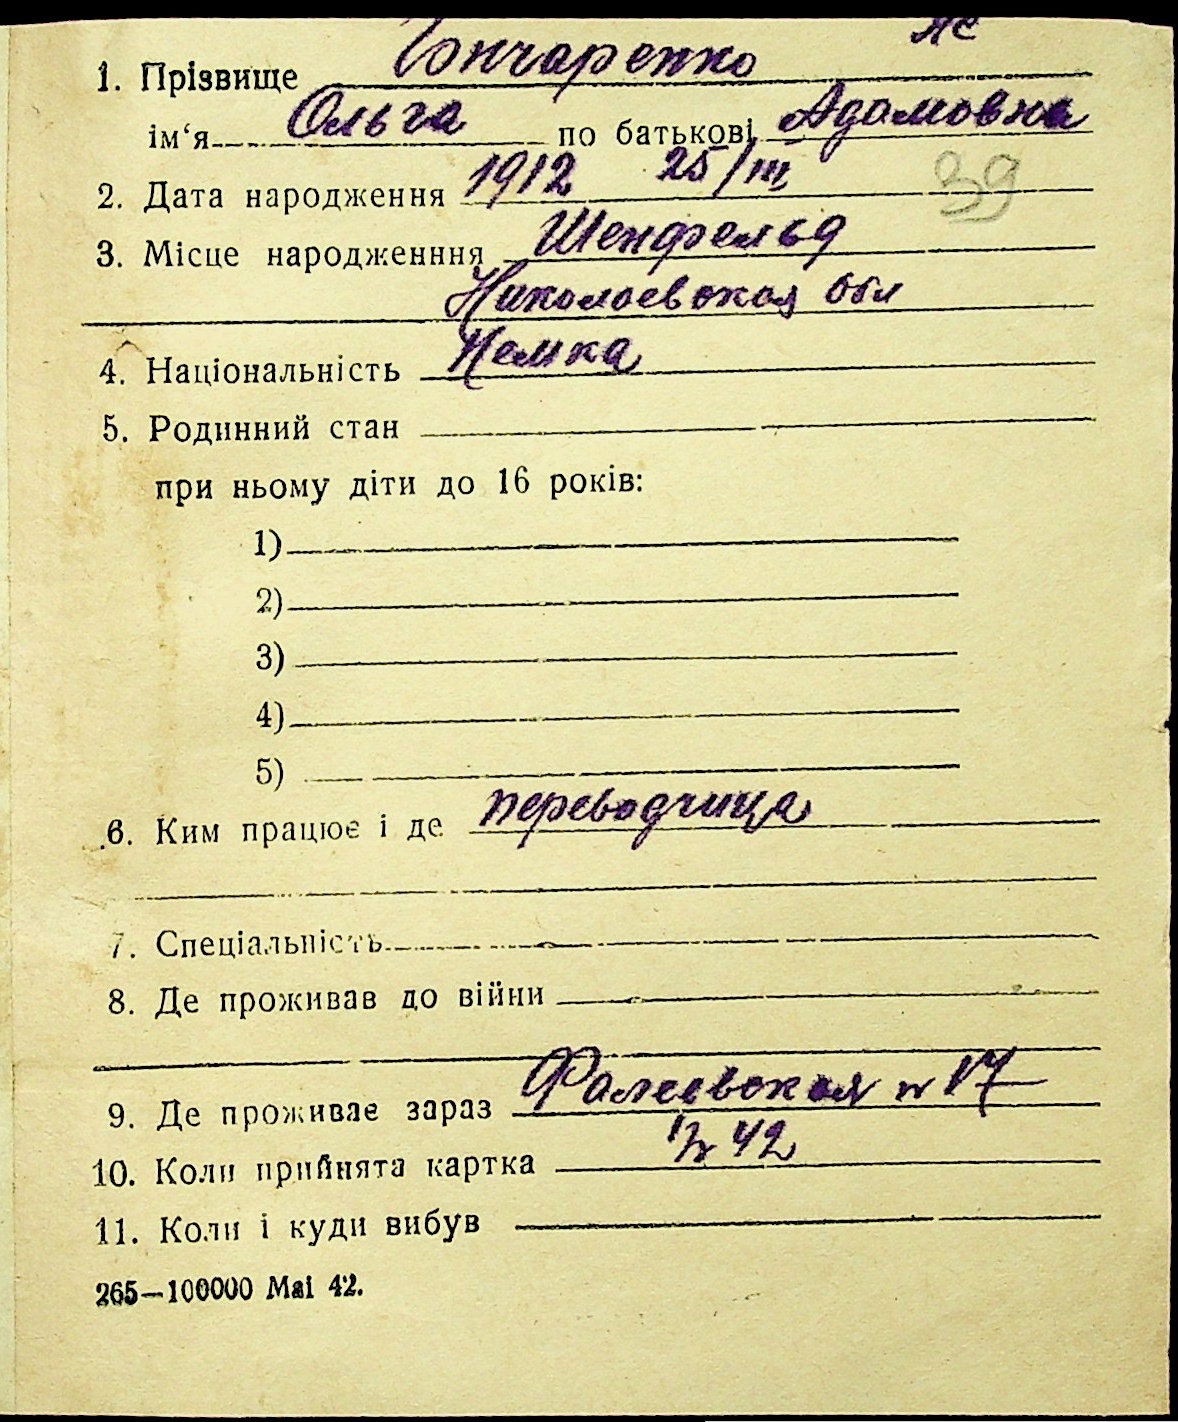 1. Прізвище Гончаренко
ім‘я Ольга по батькові Адамовна
2. Дата народження 1912 25/III 39
3. Місце народженння Шенфельд
Николаевская обл
4. Національність Немка
5. Родинний стан
при ньому діти до 16 років:
1)
2)
3)
4)
5)
6. Ким працює і де переводчица
7. Спеціальність
8. Де проживав до війни
9. Де проживає зараз Фалеевская № 17
10. Коли прийнята картка
11. Коли і куди вибув
265—100000 Mai 42.